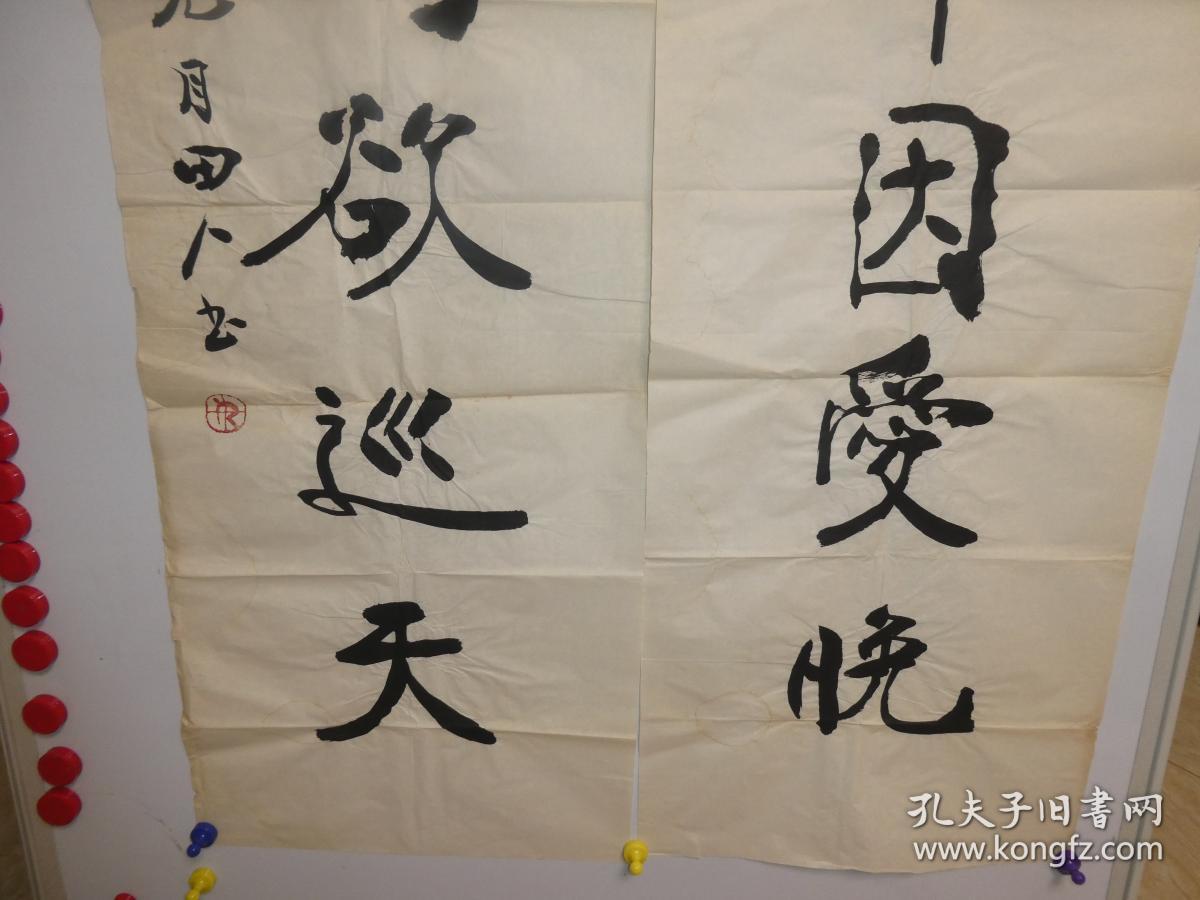 因愛晚
欲巡天
月田人书
孔夫子旧书网
www.kongfz.com